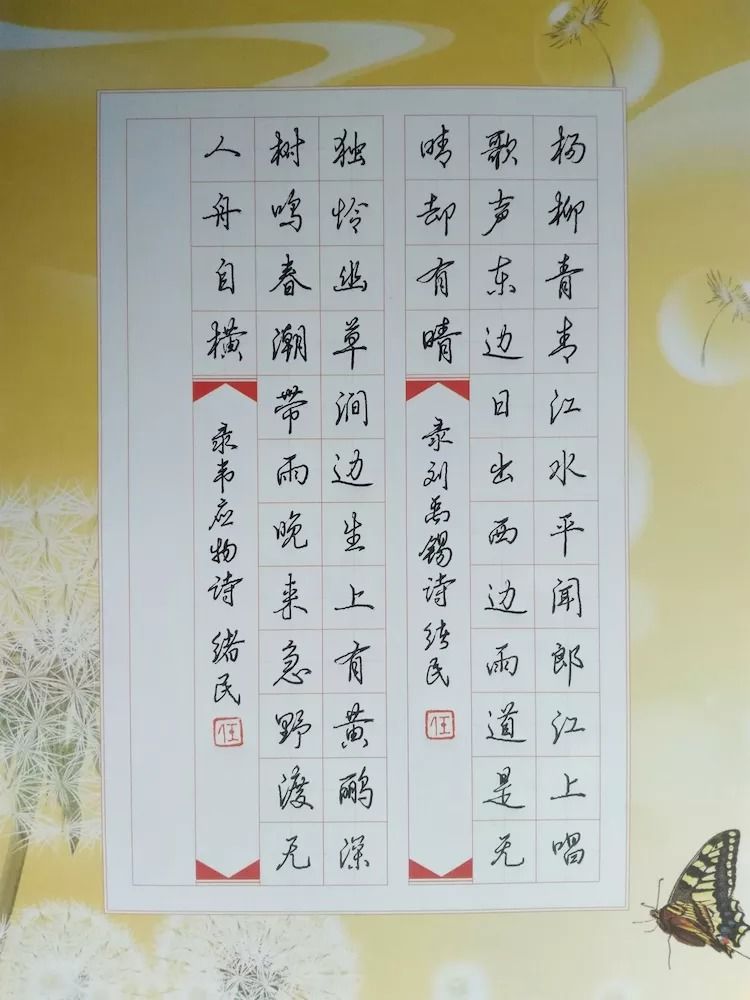 杨柳青青江水平闻郎江上唱
歌声东边日出西边雨道是无
晴却有晴
录刘禹锡诗 绪民
任
独怜幽草涧边生上有黄鹂深
树鸣春潮带雨晚来急野渡无
人舟自横
录韦应物诗 绪民
任